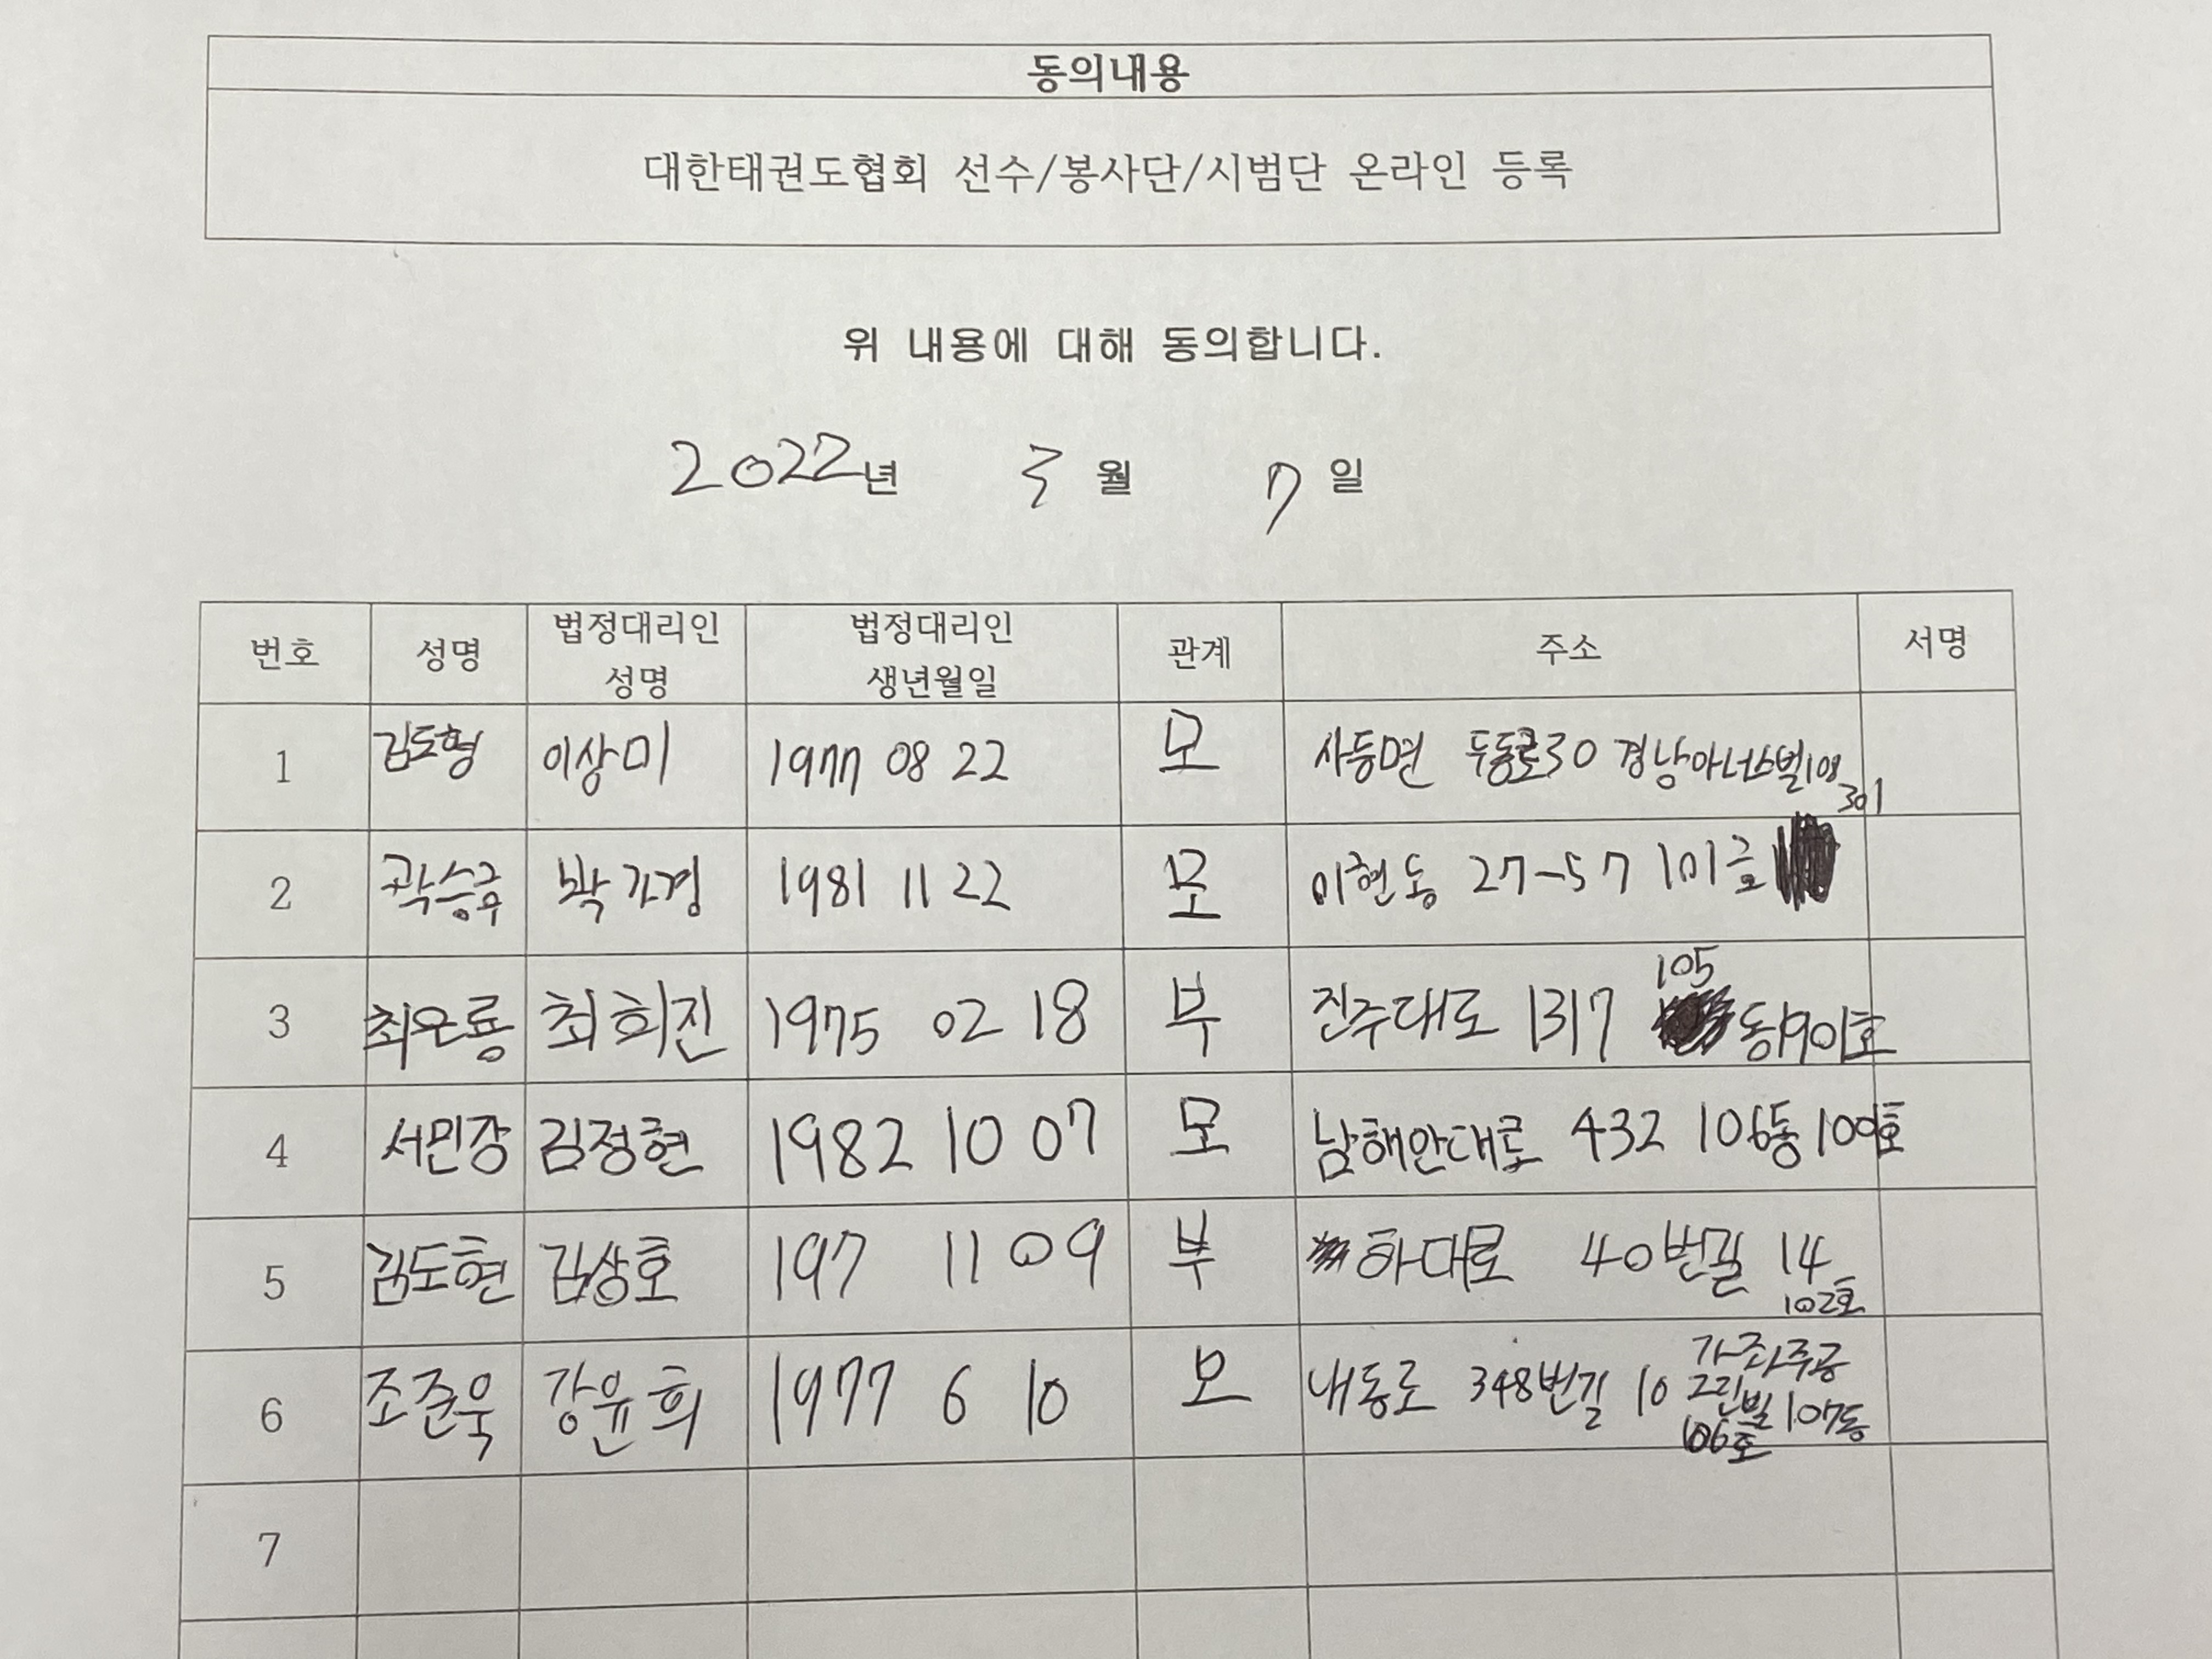 동의내용
대한태권도협회 선수/봉사단/시범단 온라인 등록
위 내용에 대해 동의합니다.
2022년 3월 7일
번호 성명 법정대리인 성명 법정대리인 생년월일 관계 주소 서명
1 김도형 이상미 1977 08 22 모 사동면 두동로30 경남아너스빌108 301
2 곽승 박가경 1981 11 22 모 이현동 27-57 101호
3 최은룡 최희진 1975 02 18 부 진주대로 1317 105 동1901호
4 서민강 김정현 1982 10 07 모 남해안대로 432 106동
5 김도현 김상호 197 11 09 부 하대로 40번길 14 102호
6 조준욱 강윤희 1977 6 10 모 내동로 348번길 10 가좌주공 그린빌 107동 106호
7